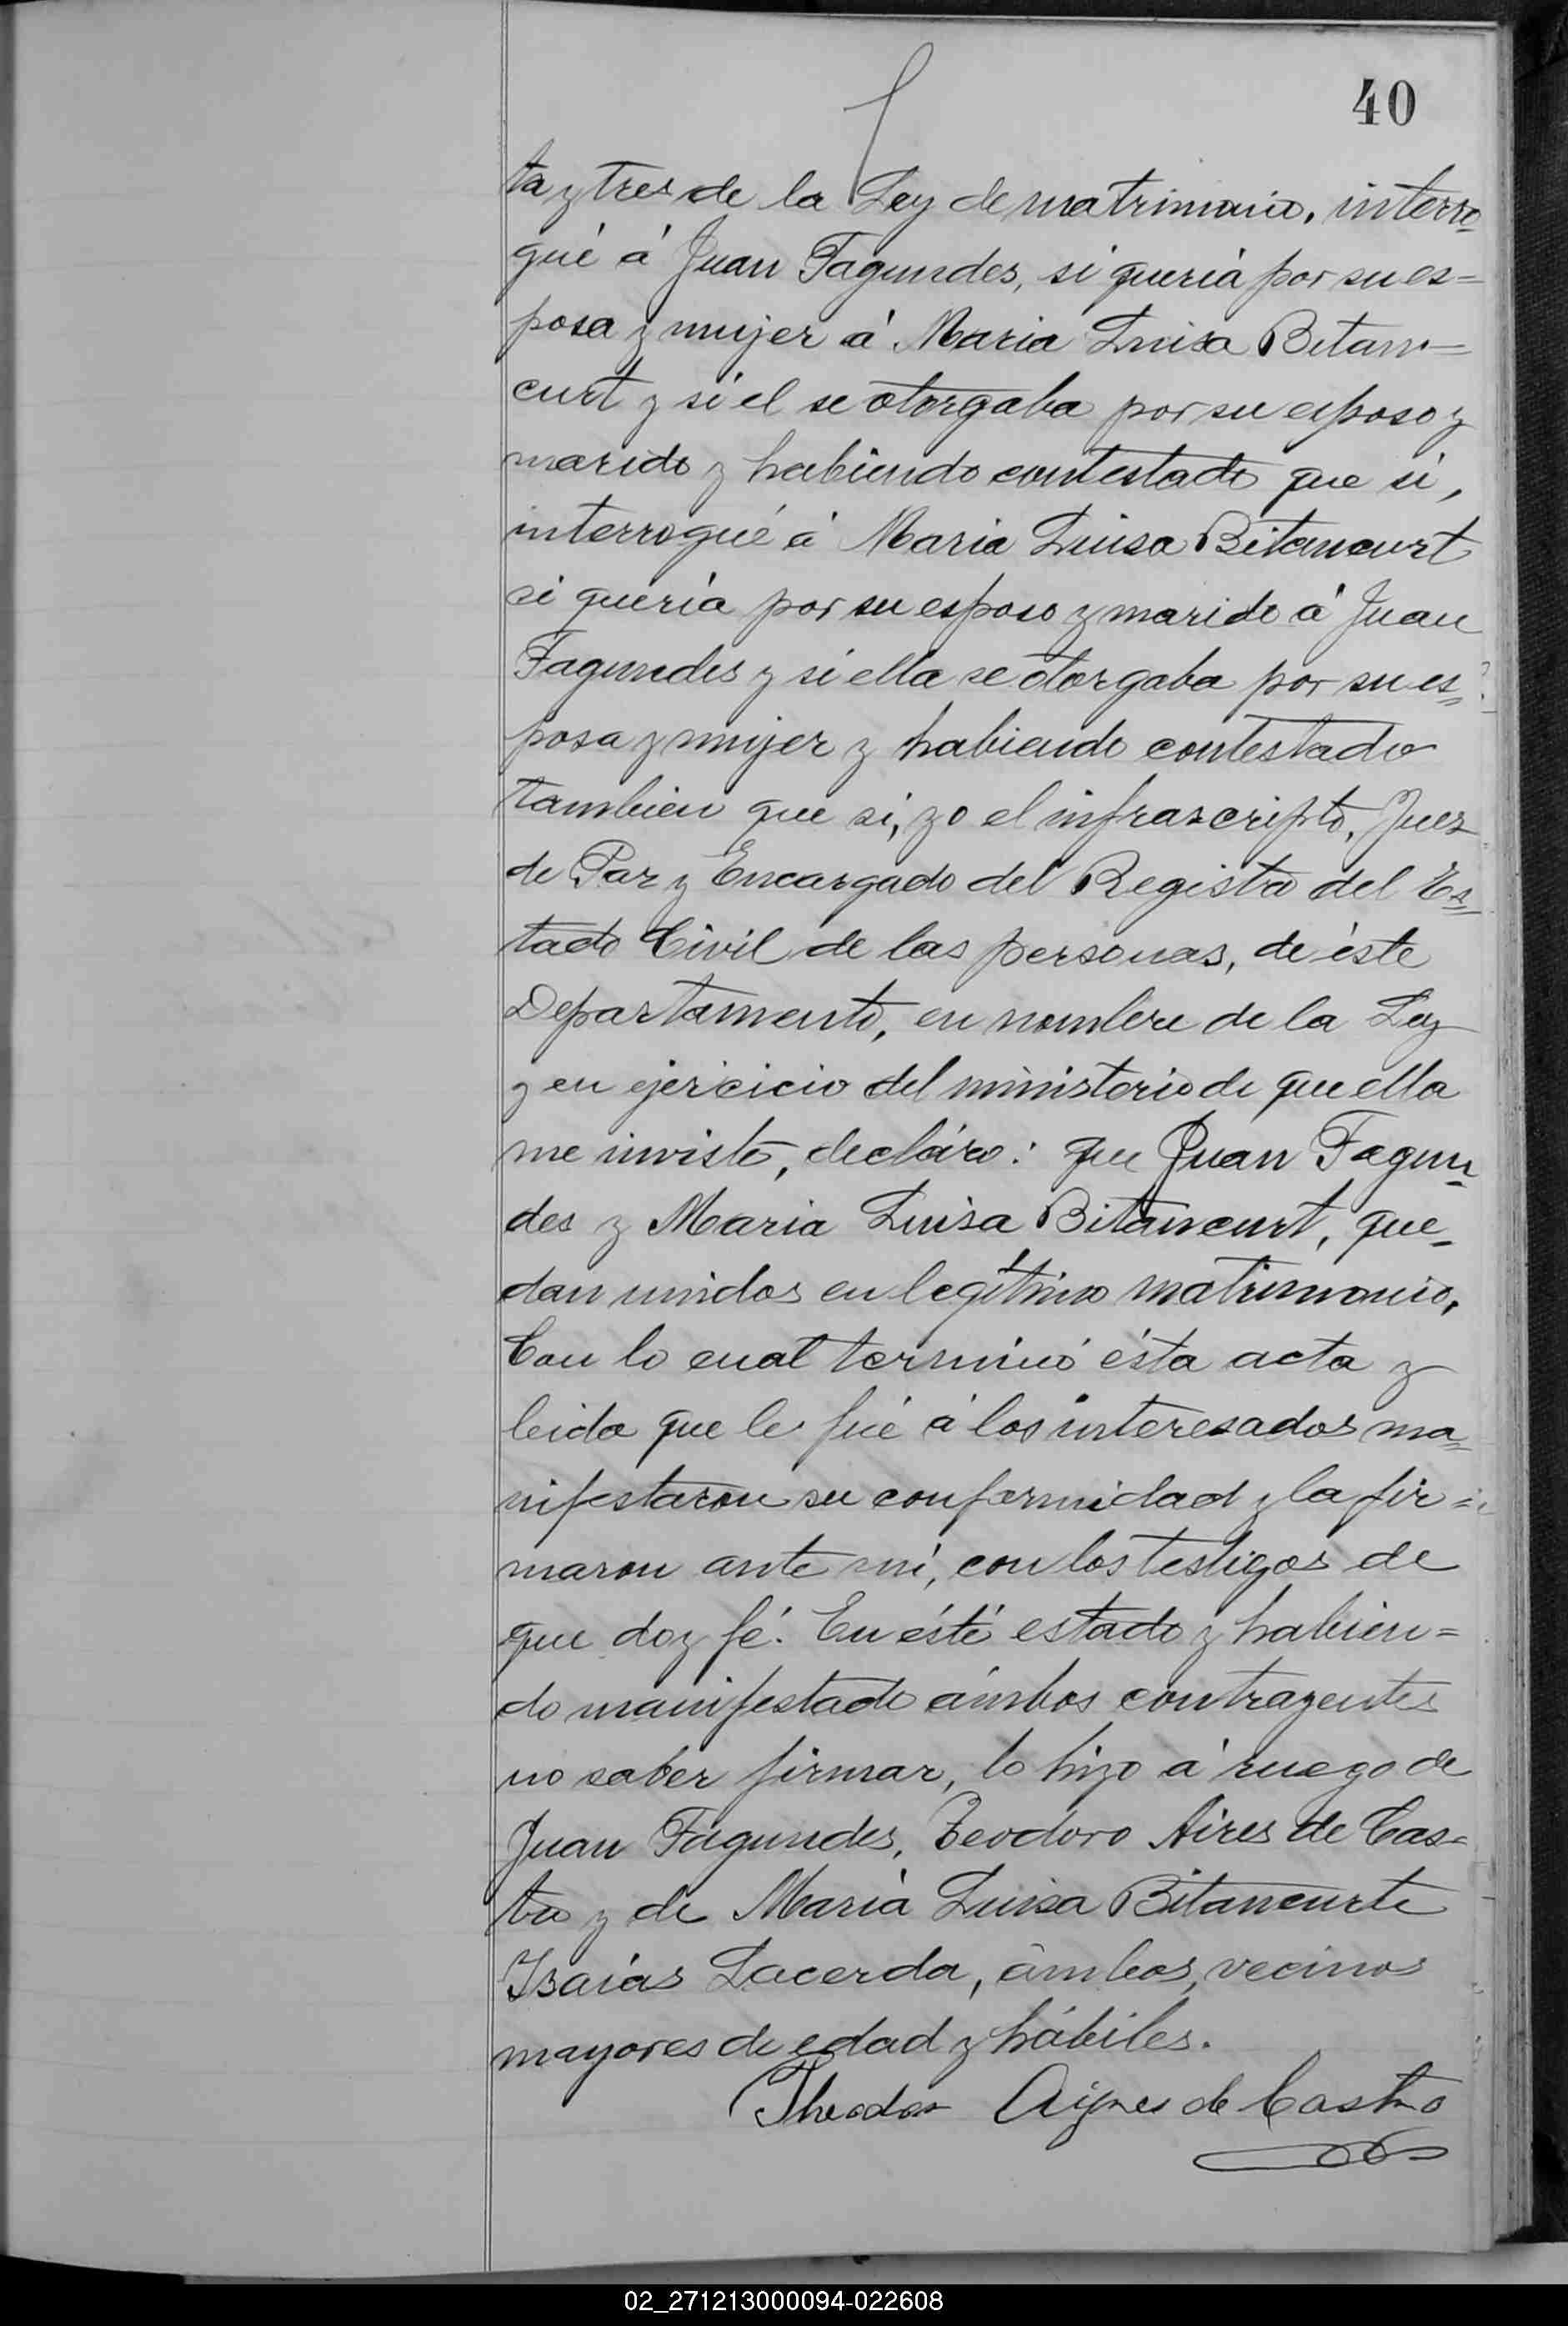 40
ta y tres de la Ley de matrimonio, interro
gué á Juan Fagundes, si quería por su es=
posa y mujer á Maria Luisa Betan=
curt y si el se otorgaba por su esposo y
marido y habiendo contestado que si,
interrogué á Maria Luisa Bitancurt
si quería por su esposo y marido á Juan
Fagundes y si ella se otorgaba por su es=
posa y mujer y habiendo contestado
tambien que si, yo el infrascripto, Juez
de Paz y Encargado del Registro del Es=
tado Civil de las personas, de éste
Departamento, en nombre de la Ley
y en ejercicio del ministerio de que ella
me inviste, decláro: que Juan Fagun
des y Maria Luisa Bitancurt, que=
dan unidos en legítimo matrimonio,
Con lo cual terminó ésta acta y
leida que le fué á los interesados ma=
nifestaron su conformidad y la fir=
maron ante mi, con los testigos de
que doy fé. En éste estado y habien=
do manifestado ámbos contrayentes
no saber firmar, lo hizo á ruego de
Juan Fagundes, Teodoro Aires de Cas=
tro y de María Luisa Bitancurte
Isaías Lacerda, ámbos, vecinos
mayores de edad y hábiles.
Theodor Ayres de Castro
02_271213000094-022608